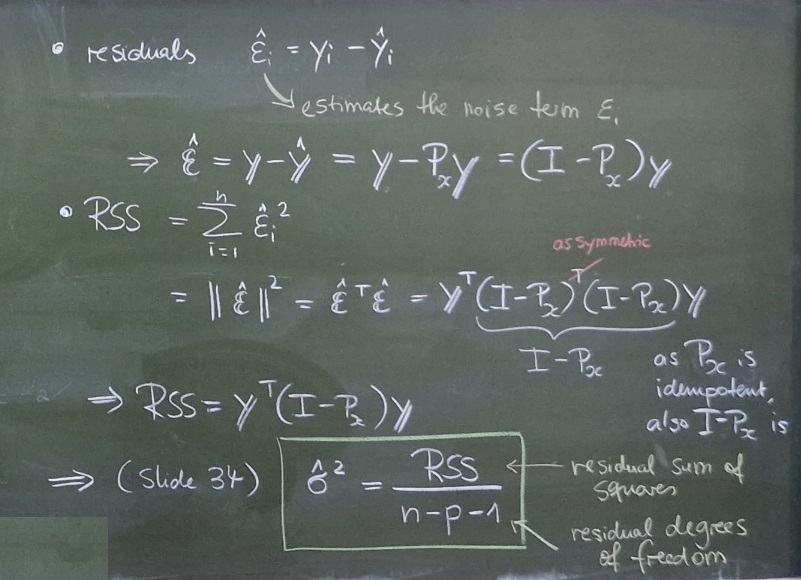 • residuals ε̂ᵢ = yᵢ − ŷᵢ
estimates the noise term εᵢ
⇒ ε̂ = y − ŷ = y − Pₓy = (I − Pₓ)y
• RSS = ∑ᵢ₌₁ⁿ ε̂ᵢ²
as symmetric
= ‖ε̂‖² = ε̂ᵀε̂ = yᵀ(I−Pₓ)ᵀ(I−Pₓ)y
I−Pₓ as Pₓ is
idempotent,
also I−Pₓ is
⇒ RSS = yᵀ(I−Pₓ)y
⇒ (Slide 34) σ̂² = RSS / (n−p−1)
← residual sum of
squares
residual degrees
of freedom